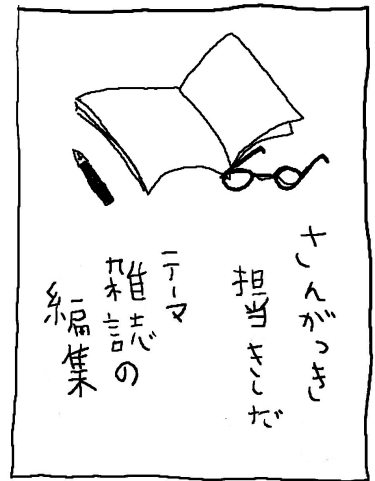 さんがつき
担当きしだ
テーマ
雑誌の
編集